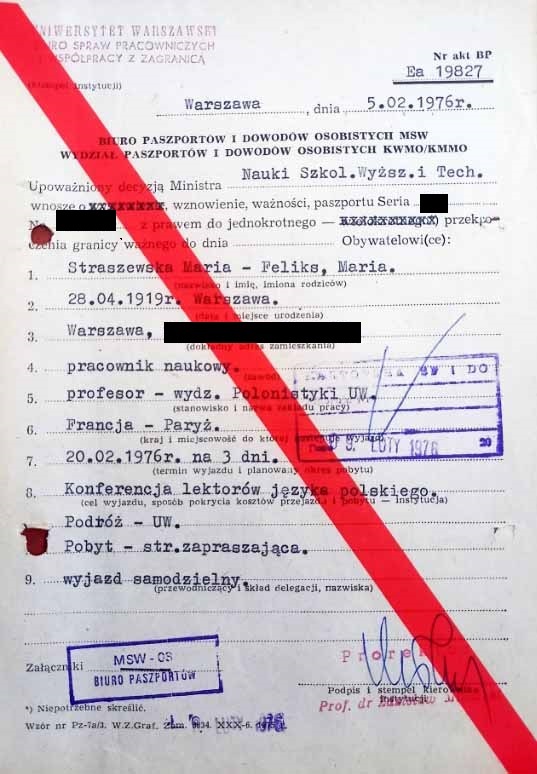 UNIWERSYTET WARSZAWSKI
BIURO SPRAW PRACOWNICZYCH
WSPÓŁPRACY Z ZAGRANICĄ
(stempel instytucji)
Nr akt BP
Ea 19827
Warszawa , dnia 5.02.1976r.
BIURO PASZPORTÓW I DOWODÓW OSOBISTYCH MSW
WYDZIAŁ PASZPORTÓW I DOWODÓW OSOBISTYCH KWMO/KMMO
Upoważniony decyzją Ministra Nauki Szkol.Wyższ.i Tech.
wnoszę o xxxxxxxx, wznowienie, ważności, paszportu Seria
z prawem do jednokrotnego — przekro-
czenia granicy ważnego do dnia Obywatelowi(ce):
1. Straszewska Maria - Feliks, Maria.
(nazwisko i imię, imiona rodziców)
2. 28.04.1919r. Warszawa.
(data i miejsce urodzenia)
3. Warszawa,
(dokładny adres zamieszkania)
4. pracownik naukowy.
(zawód)
5. profesor - wydz. Polonistyki UW.
(stanowisko i nazwa zakładu pracy)
6. Francja - Paryż.
(kraj i miejscowość do której wyjazd)
9. LUTY 1976
7. 20.02.1976r. na 3 dni.
(termin wyjazdu i planowany okres pobytu)
8. Konferencja lektorów języka polskiego.
(cel wyjazdu, sposób pokrycia kosztów przejazdu i pobytu — instytucja)
Podróż - UW.
Pobyt - str.zapraszająca.
9. wyjazd samodzielny.
(przewodniczący i skład delegacji, nazwiska)
Załączniki
MSW - 03
BIURO PASZPORTÓW
Prorektor
Podpis i stempel kierownika
instytucji
Prof. dr
*) Niepotrzebne skreślić.
Wzór nr Pz-7a/3. W.Z.Graf. Zam.